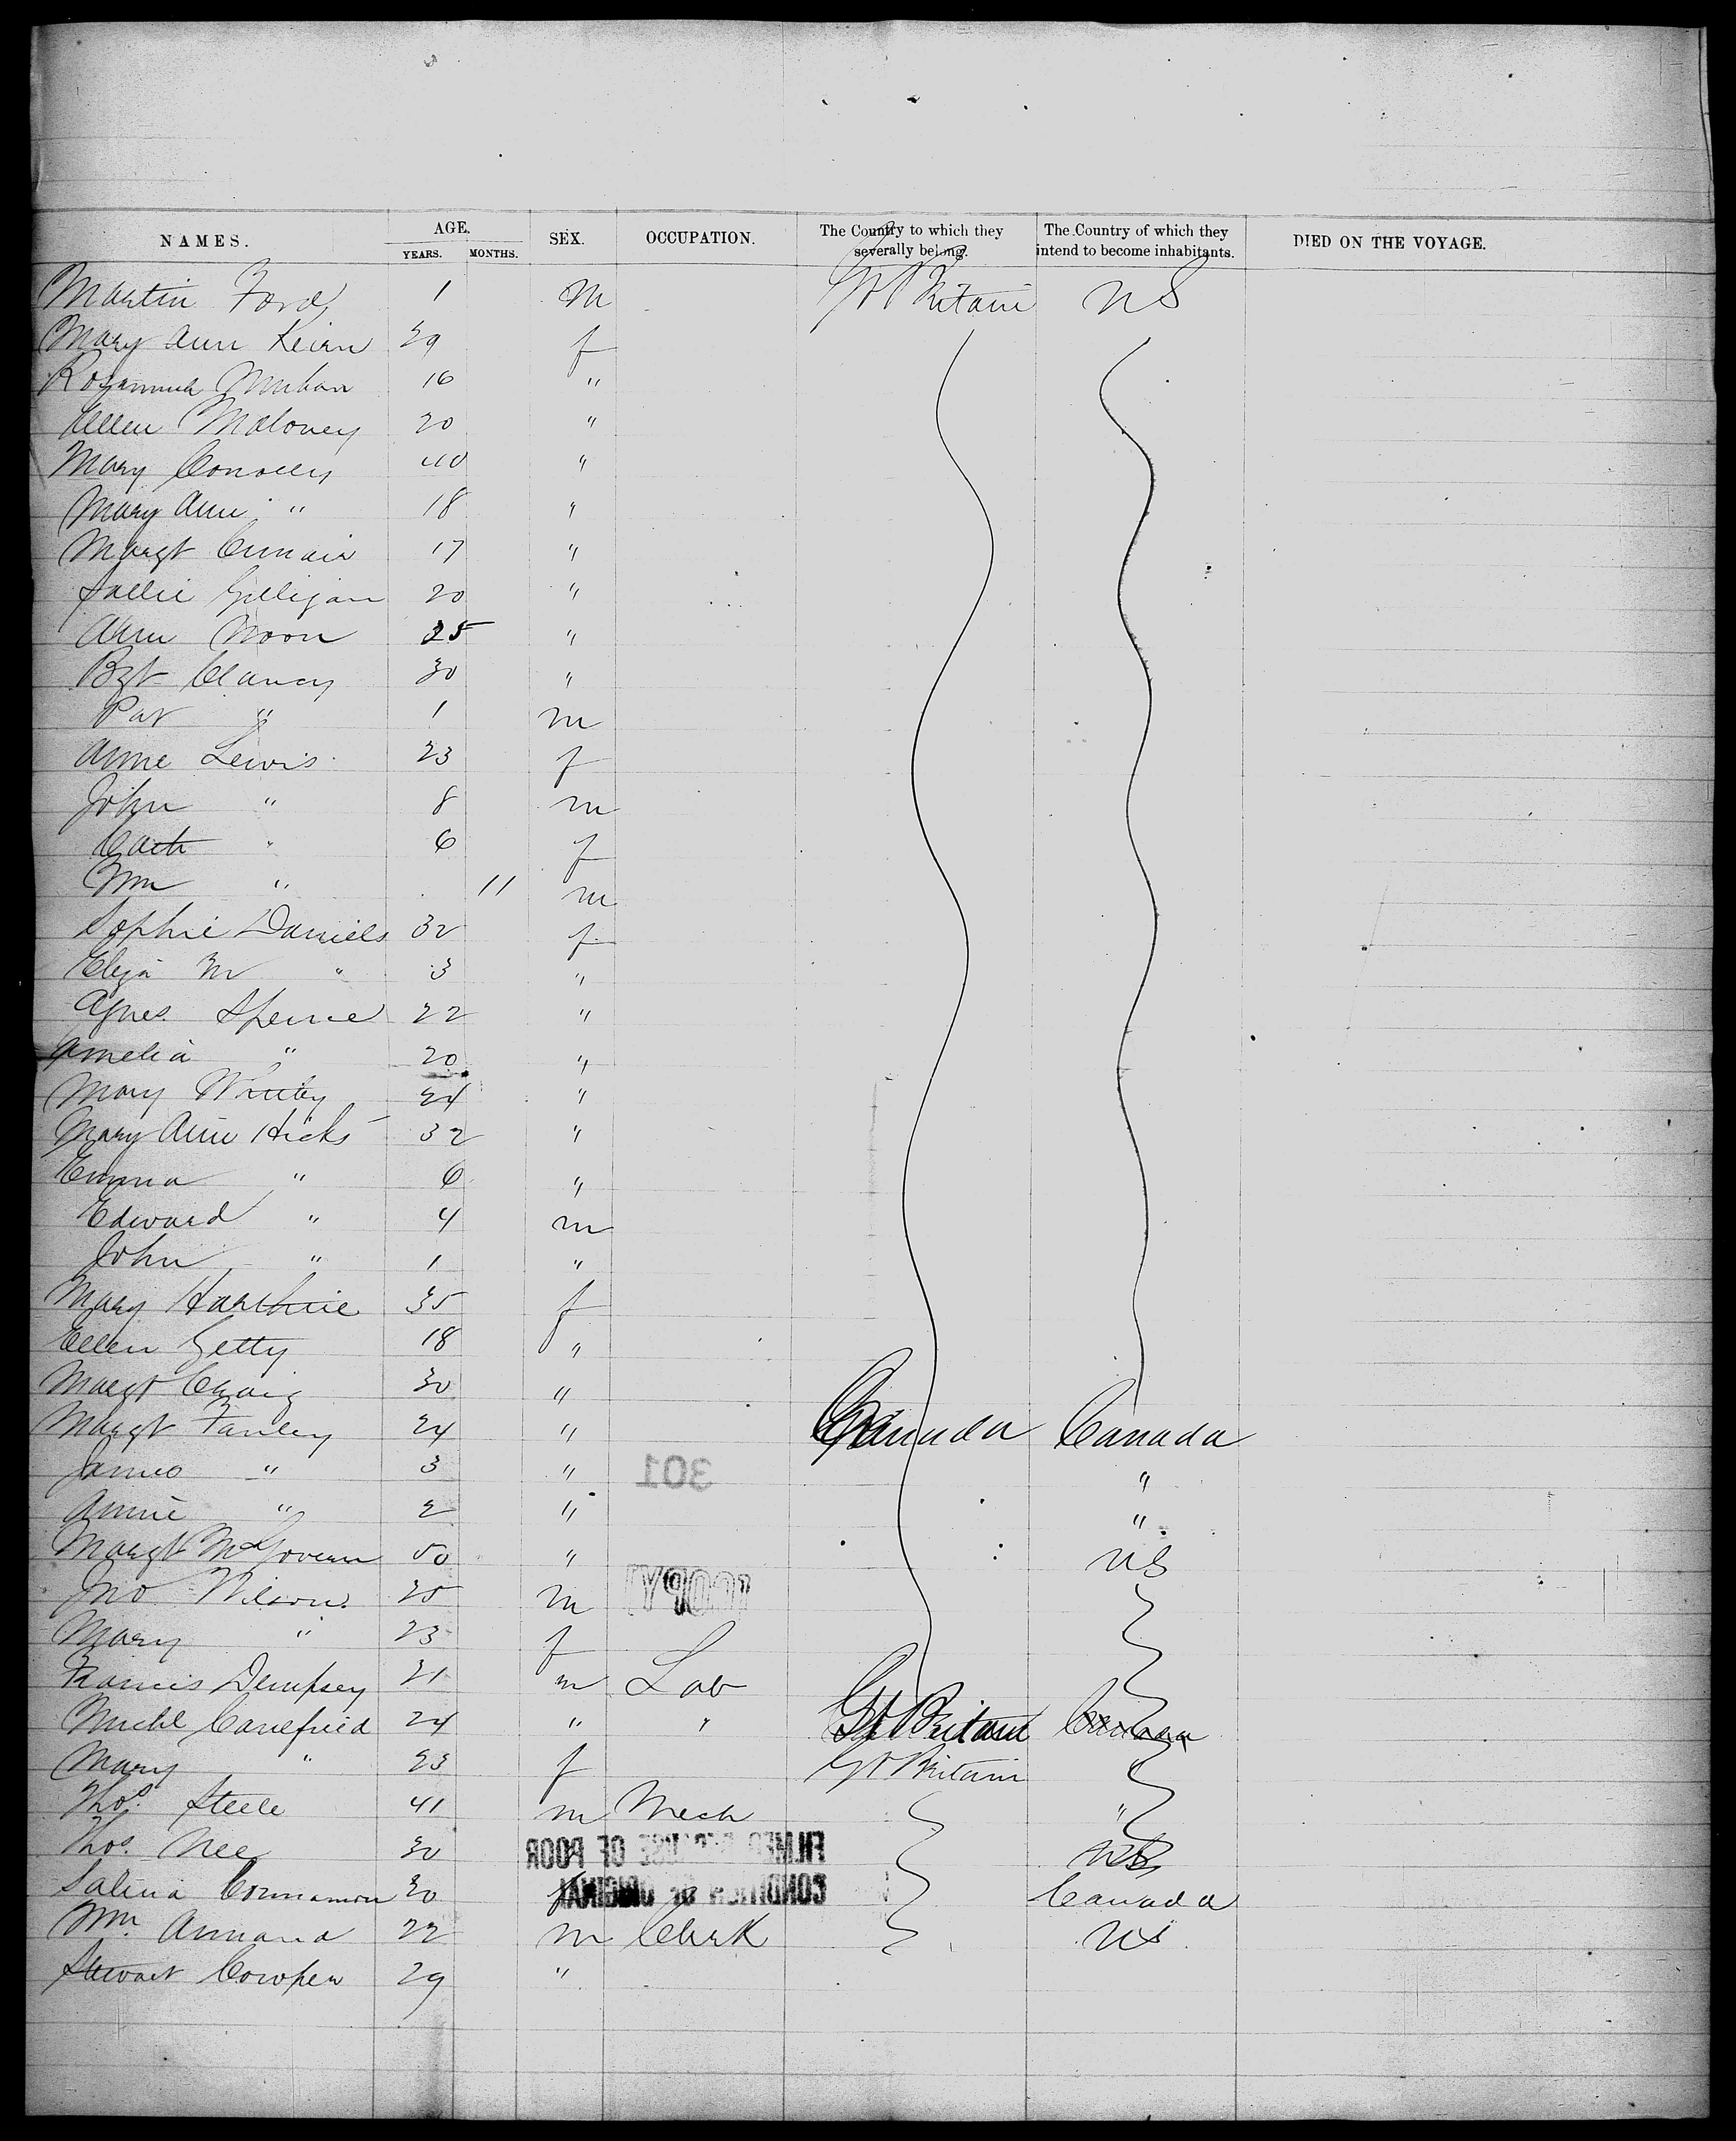 NAMES. AGE. YEARS. MONTHS. SEX. OCCUPATION. The Country to which they severally belong. The Country of which they intend to become inhabitants. DIED ON THE VOYAGE.
Martin Ford 1 m Gt Britain US
Mary Ann Keirn 29 f
16 "
Ellen Maloney 20 "
Mary Conolly 40 "
Mary Ann " 18 "
Margt 17 "
Sallie Gilligan 20 "
Ann Noon 25 "
Bgt Clancy 30 "
Pat " 1 m
Anne Lewis 23 f
John " 8 m
Cath " 6 f
Wm " 11 m
Sophie Daniels 32 f
Eliza M " 3 "
Agnes Spence 22 "
Amelia " 20 "
Mary Whitby 24 "
Mary Ann Hicks 32 "
Emma " 6 "
Edward " 4 m
John " 1 "
Mary 35 f
Ellen Getty 18 "
Margt Craig 30 "
Margt Fanley 24 " Canada Canada
James " 3 " "
Annie " 2 " "
Margt McGovern 50 " US
Jno Wilson 25 m
Mary " 23 f
Francis Dempsey 21 m Lab
Michl Canefried 24 " " Gt Britain
Mary " 23 f Gt Britain
Thos. Steele 41 m Mech "
Thos. Nee 30 US
Salina Connamon 30 f Canada
Wm. Annand 22 m Clerk US
Stewart Cowper 29 "
301
COPY
FILMED BECAUSE OF POOR
CONDITION OF ORIGINAL